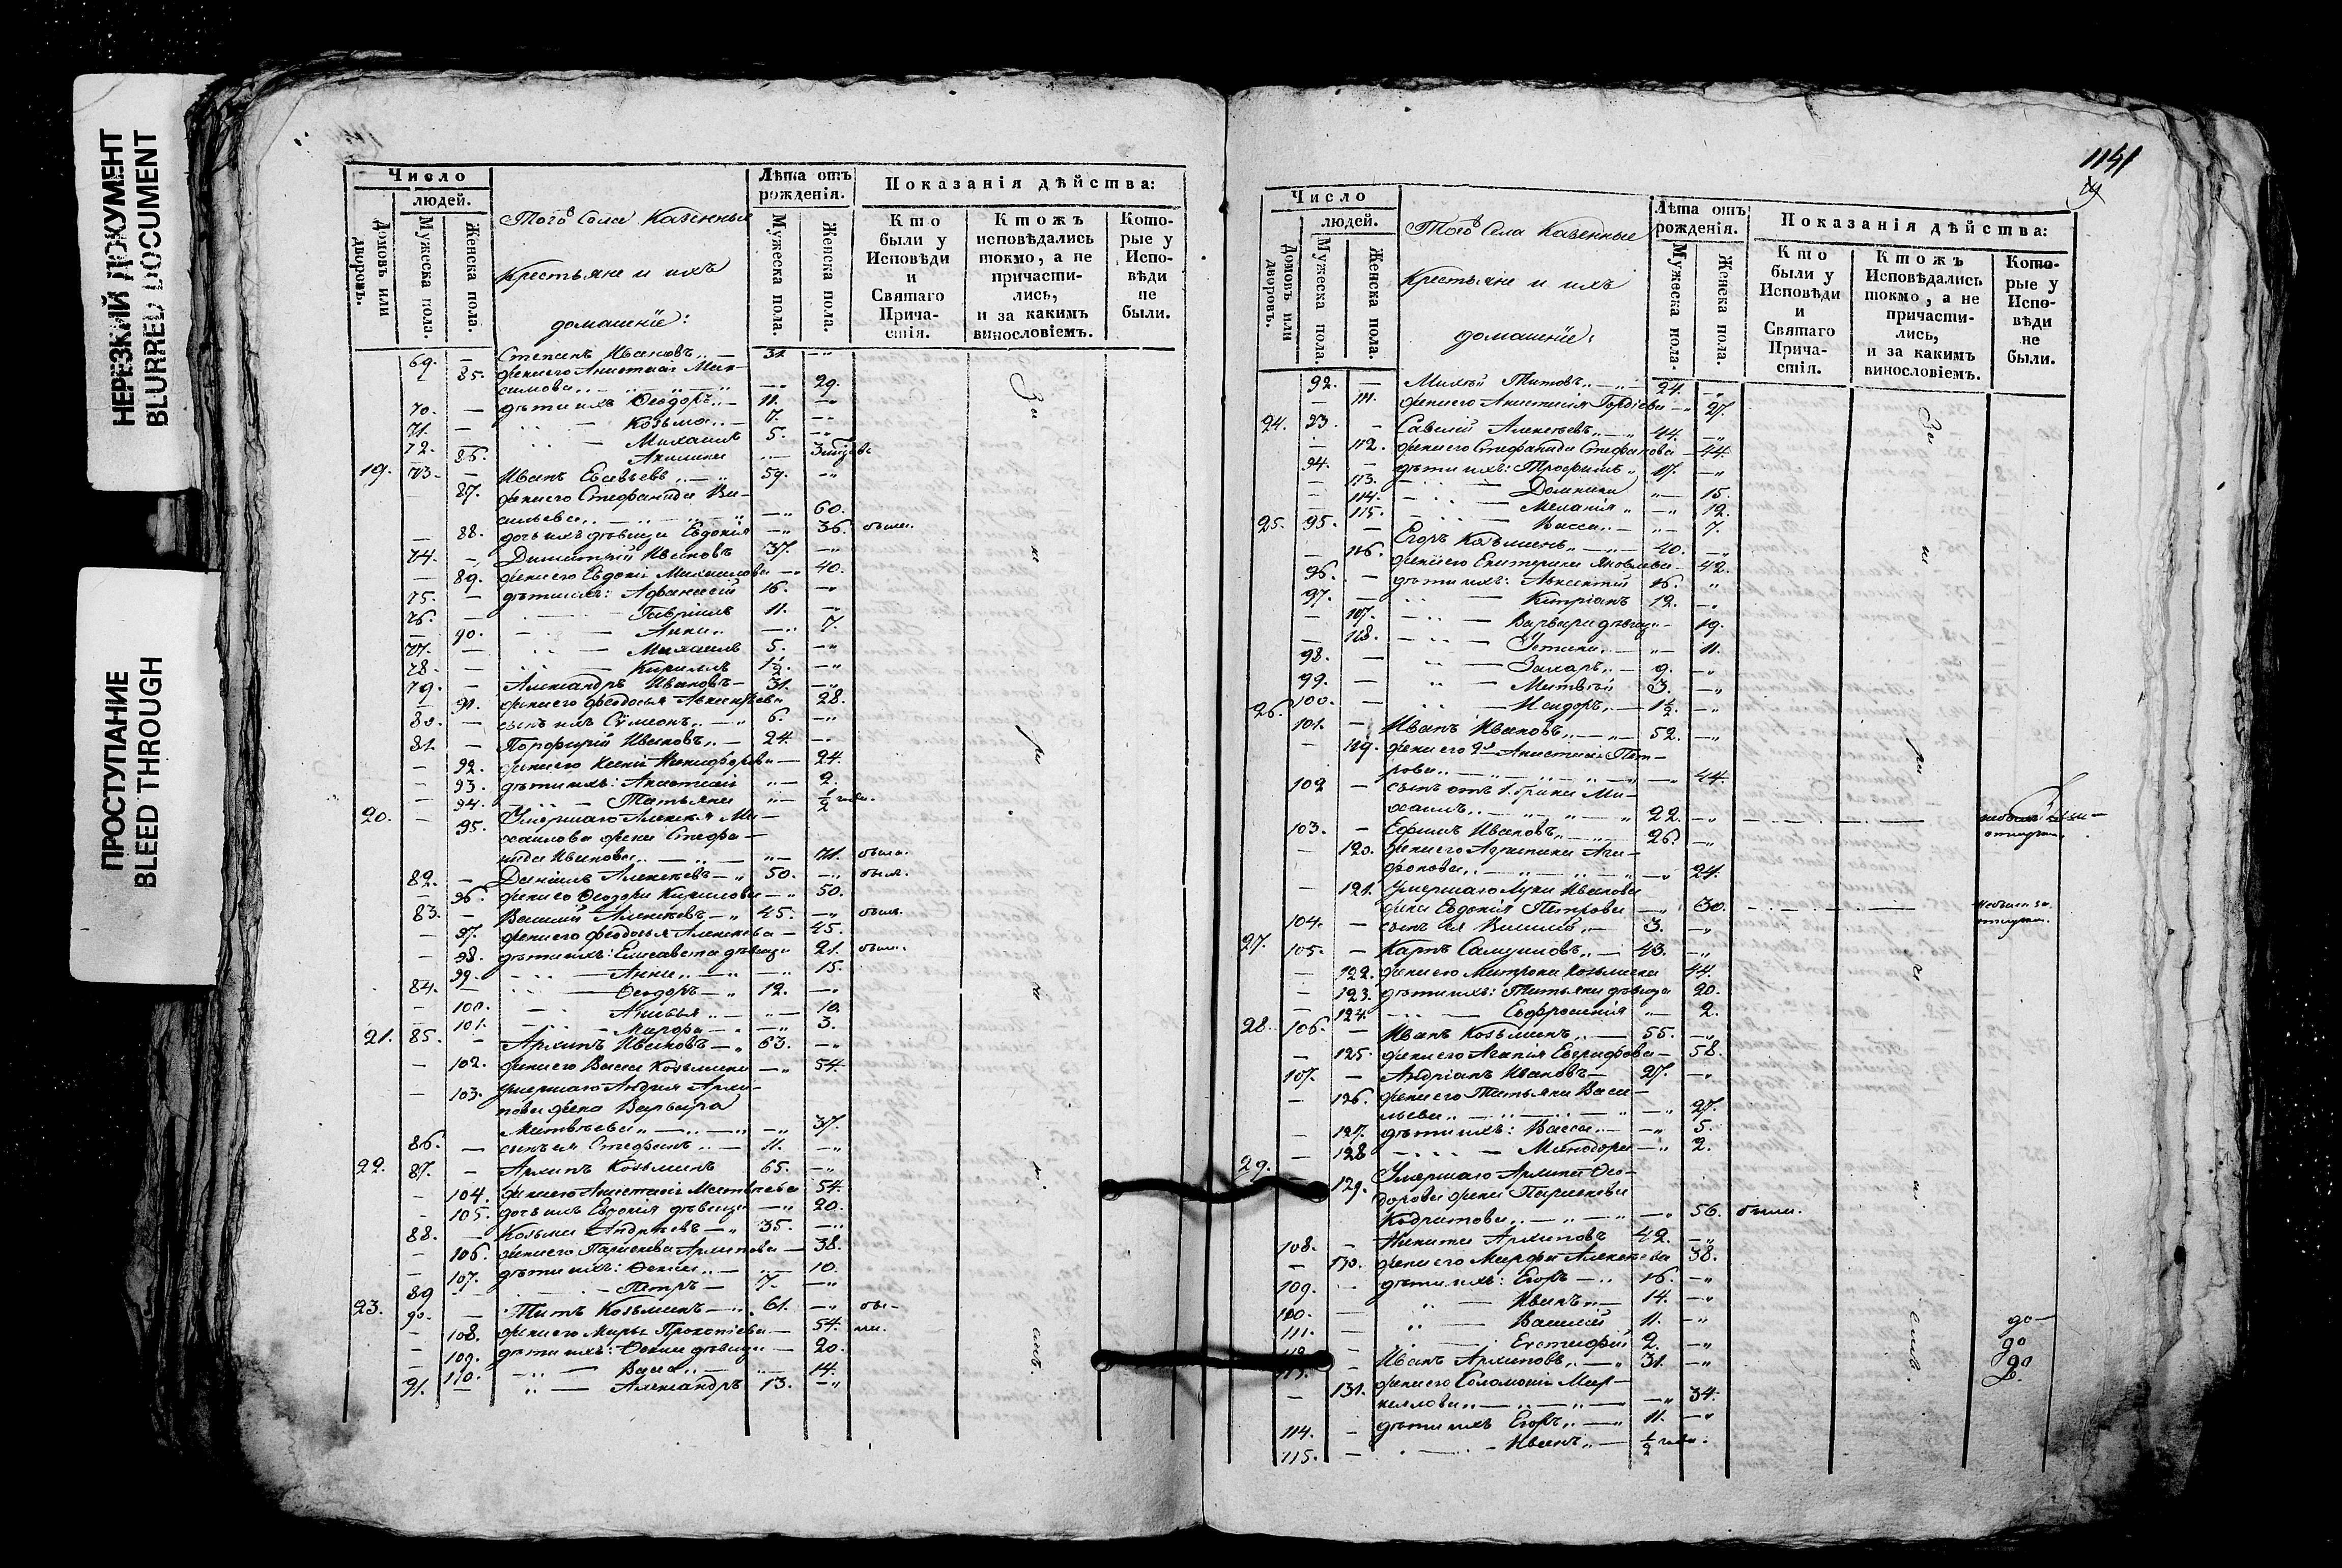 НЕРЕЗКИЙ ДОКУМЕНТ
BLURRED DOCUMENT
ПРОСТУПАНИЕ
BLEED THROUGH
Число
людей.
Домовъ или дворовъ.
Мужеска пола.
Женска пола.
Того Села Казенные
Крестьяне и ихъ
домашніе:
Лѣта отъ рожденія.
Мужеска пола.
Женска пола.
Показанія дѣйства:
Кто были у Исповѣди и Святаго Прича-стія.
Ктожъ исповѣдались токмо, а не причасти-лись, и за какимъ винословіемъ.
Кото-рые у Испо-вѣди не были.
69. — Степанъ Ивановъ 31.
85. жена его Анастасія Мак-
симова 29.
70. — дѣти ихъ Ѳеодоръ 11.
71. — Козьма 7.
72. — Михаилъ 5.
86. Акилина
19. 73. — Иванъ 59.
87. жена его Стефанида Ва-
сильева 60.
88. дочь ихъ дѣвица Евдокія 36.
74. — Димитрій Ивановъ 37.
89. жена его Евдокія Михаилова 40.
75. — дѣти ихъ: Афанасій 16.
76. — Гавріилъ 11.
90. Анна 7.
77. — Михаилъ 5.
78. — Кириллъ 1½.
79. — Александръ Ивановъ 31.
91. жена его Феодосья 28.
80. — сынъ ихъ Сумеонъ 6.
81. — Порфирій Ивановъ 24.
92. жена его Ксенія Никифорова 24.
93. дѣти ихъ: Анастасія 2.
94. Татьяна ½
20. 95. Умершаго Алексѣя Ми-
хаилова жена Стефа-
нида Иванова 71. была.
82. — Даніилъ Алексѣевъ 50.
96. жена его Ѳеодора Кирилова 50.
83. — Василій Алексѣевъ 45.
97. жена его Феодосья Алексѣева 45.
98. дѣти ихъ: Елисавета дѣвица 21.
99. Анна 15.
84. — Ѳеодоръ 12.
100. Анисья 10.
101. Марфа 3.
21. 85. — Архипъ Ивановъ 63.
102. жена его Васса Козьмина 54.
103. умершаго Андрея Архи-
пова жена Варвара
Матвѣева 37.
86. — сынъ ея Стефанъ 11.
22. 87. — Архипъ Козьминъ 65.
104. жена его Анастасія Матвѣева 54.
105. дочь ихъ Евдокія дѣвица 20.
88. — Козьма Андреевъ 35.
106. жена его Параскева Архипова 38.
107. дѣти ихъ: Ѳекла 10.
89 Петръ 7.
23. 90. — Титъ Козьминъ 61. бы-
108. жена его Марья Прокопіева 54. ли.
109. дѣти ихъ: Ѳекла дѣвица 20.
110. Васса 14.
91. — Александръ 13.
1141
Число
людей.
Домовъ или дворовъ.
Мужеска пола.
Женска пола.
Того Села Казенные
Крестьяне и ихъ
домашніе:
Лѣта отъ рожденія.
Мужеска пола.
Женска пола.
Показанія дѣйства:
Кто были у Исповѣди и Святаго Прича-стія.
Ктожъ Исповѣдались токмо, а не причасти-лись, и за какимъ винословіемъ.
Кото-рые у Испо-вѣди не были.
92. — Титовъ 24.
111. жена его Анастасія Гордіева 27.
24. 93. — Савелій Алексѣевъ 44.
112. жена его Стефанида Стефанова 44.
94. — дѣти ихъ: Трофимъ 17.
113. Домника 15.
114. Меланія 12.
115. Васса 7.
25. 95. — Егоръ Козьминъ 40.
116. жена его Екатерина Яковлева 42.
96. — дѣти ихъ: Авксентій 16.
97. — Кипріанъ 12.
117. Варвара дѣвица 19.
118. Устина 11.
98. — Захаръ 9.
99. — Матвѣй 3.
100. — Исидоръ 1½.
26. 101. — Иванъ Ивановъ 52.
119. жена его Анастасія Пет-
рова 44.
102 — сынъ отъ 1. брака Ми-
хаилъ 22.
103. — Ефимъ Ивановъ 26.
120. жена его Агрипина Ага-
фонова 24.
121. Умершаго Луки Иванова
жена Евдокія Петрова 30.
104. — сынъ ея Василій 3.
27. 105. — Карпъ Самуиловъ 43.
122. жена его Матрона Козьмина 44.
123. дѣти ихъ: Татьяна дѣвица 20.
124. Евфросинія 2.
28. 106. — Иванъ Козьминъ 55.
125. жена его Агапія Евграфова 58.
107. — Андріанъ Ивановъ 27.
126. жена его Татьяна Васи-
льева 27.
127. дѣти ихъ: Васса 5.
128 Минодора 2.
29. 129. Умершаго Архипа Ѳео-
дорова жена Параскева
Кодратова 56. была.
108. — Никита Архиповъ 42.
130. жена его Марфа Алексѣева 38.
109. — дѣти ихъ: Егоръ 16.
110. — Иванъ 14.
111. — Василій 11.
112. — Евстафій 2.
113. — Иванъ Архиповъ 31.
131. жена его Соломонія Мар-
келлова 34.
114. — дѣти ихъ Егоръ 11.
115. — Иванъ ½